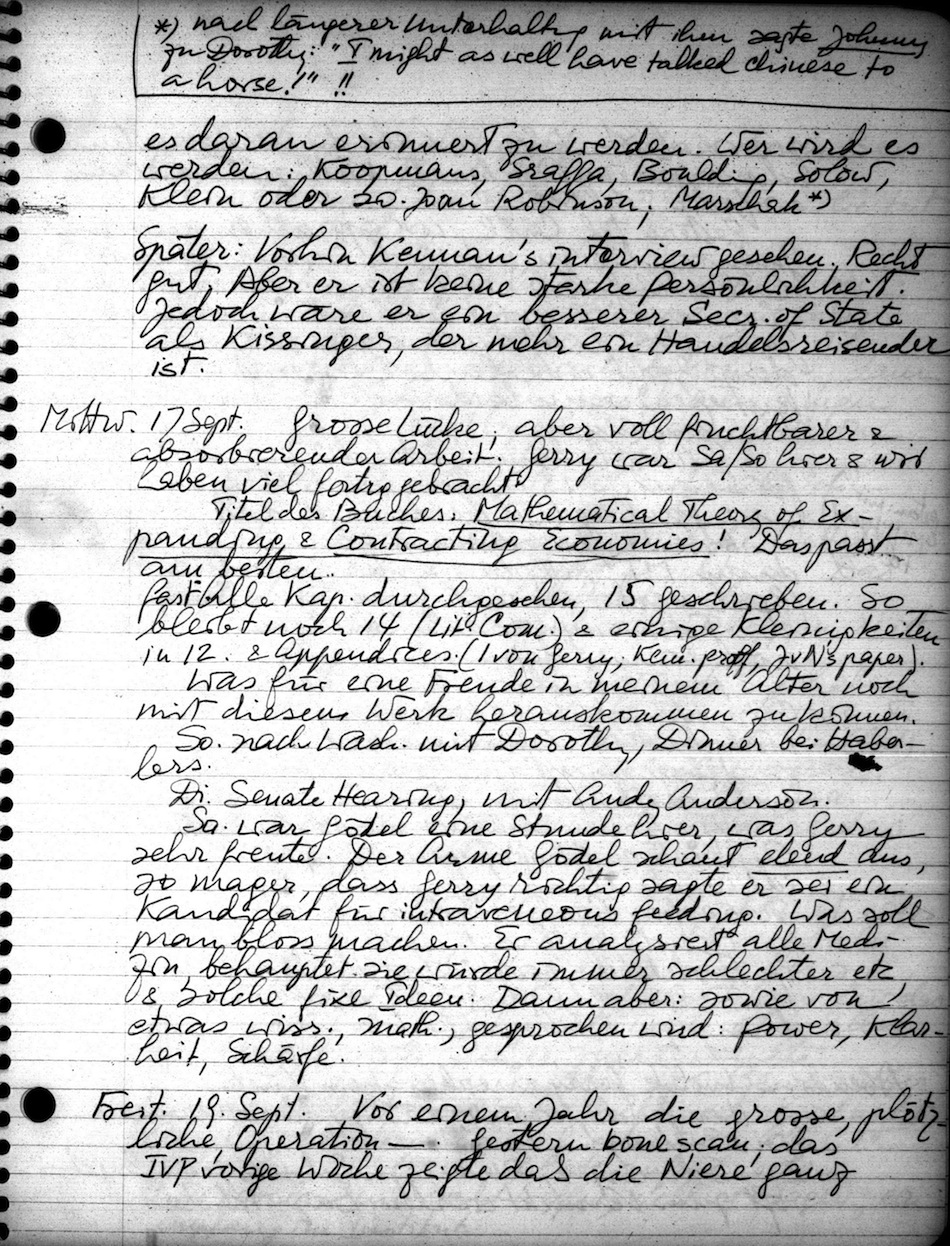 *) nach längerer Unterhaltung mit ihm sagte Johnny
zu Dorothy: "I might as well have talked chinese to
a horse!" !!
es daran erinnert zu werden. Wer wird es
werden: Koopmans, Sraffa, Boulding, Solow,
Klein oder so. Joan Robinson; Marschak *)
Später: Vorhin Kennan's interview gesehen. Recht
gut, Aber er ist keine starke Persönlichkeit.
Jedoch wäre er ein besserer Secr. of State
als Kissinger, der mehr ein Handelsreisender
ist.
Mittw. 17 Sept. Grosse Lücke, aber voll fruchtbarer &
absorbierender Arbeit. Gerry war Sa/So hier & wir
haben viel fertig gebracht.
Titel des Buches: Mathematical Theory of Ex-
panding & Contracting Economies! Das passt
am besten.
Fast alle Kap. durchgesehen, 15 geschrieben. So
bleibt noch 14 (Lit. Com.) & einige Kleinigkeiten
in 12. & Appendices. (1 von Gerry, Kem. proof, JvN's paper).
Was für eine Freude in meinem Alter noch
mit diesem Werk herauskommen zu können.
So. nach Wash. mit Dorothy, Dinner bei Haber-
lers.
Di. Senate Hearing, mit Andy Anderson.
Sa. war Gödel eine Stunde hier, was Gerry
sehr freute. Der Arme Gödel schaut elend aus,
so mager, dass Gerry richtig sagte er sei ein
Kandidat für intraveneous feeding. Was soll
man bloss machen. Er analysiert alle Medi-
zin, behauptet sie würde immer schlechter etc
& solche fixe Ideen. Dann aber: sowie von
etwas wiss., math., gesprochen wird: Power, Klar-
heit, Schärfe.
Freit. 19. Sept. Vor einem Jahr die grosse, plötz-
liche Operation —. Gestern bone scan; das
IVP vorige Woche zeigte das die Niere ganz